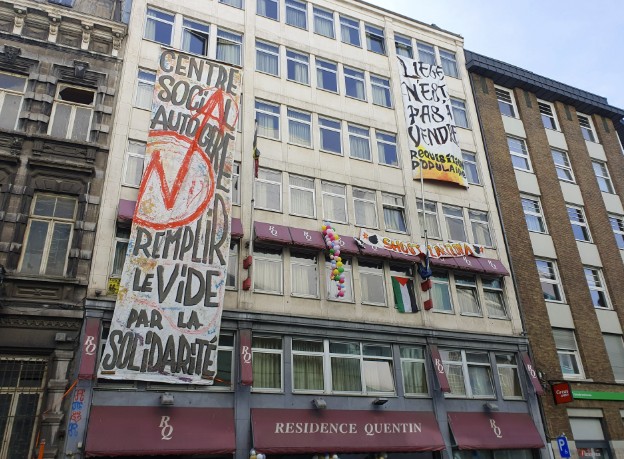 CENTRE
SOCIAL
AUTOGÉRÉ
REMPLIR
LE VIDE
PAR LA
SOLIDARITÉ
LIÈGE
N'EST
PAS À
VENDRE
REQUISITION
POPULAIRE
RQ
RQ
RQ
RQ
RQ
RESIDENCE QUENTIN
RQ
RQ